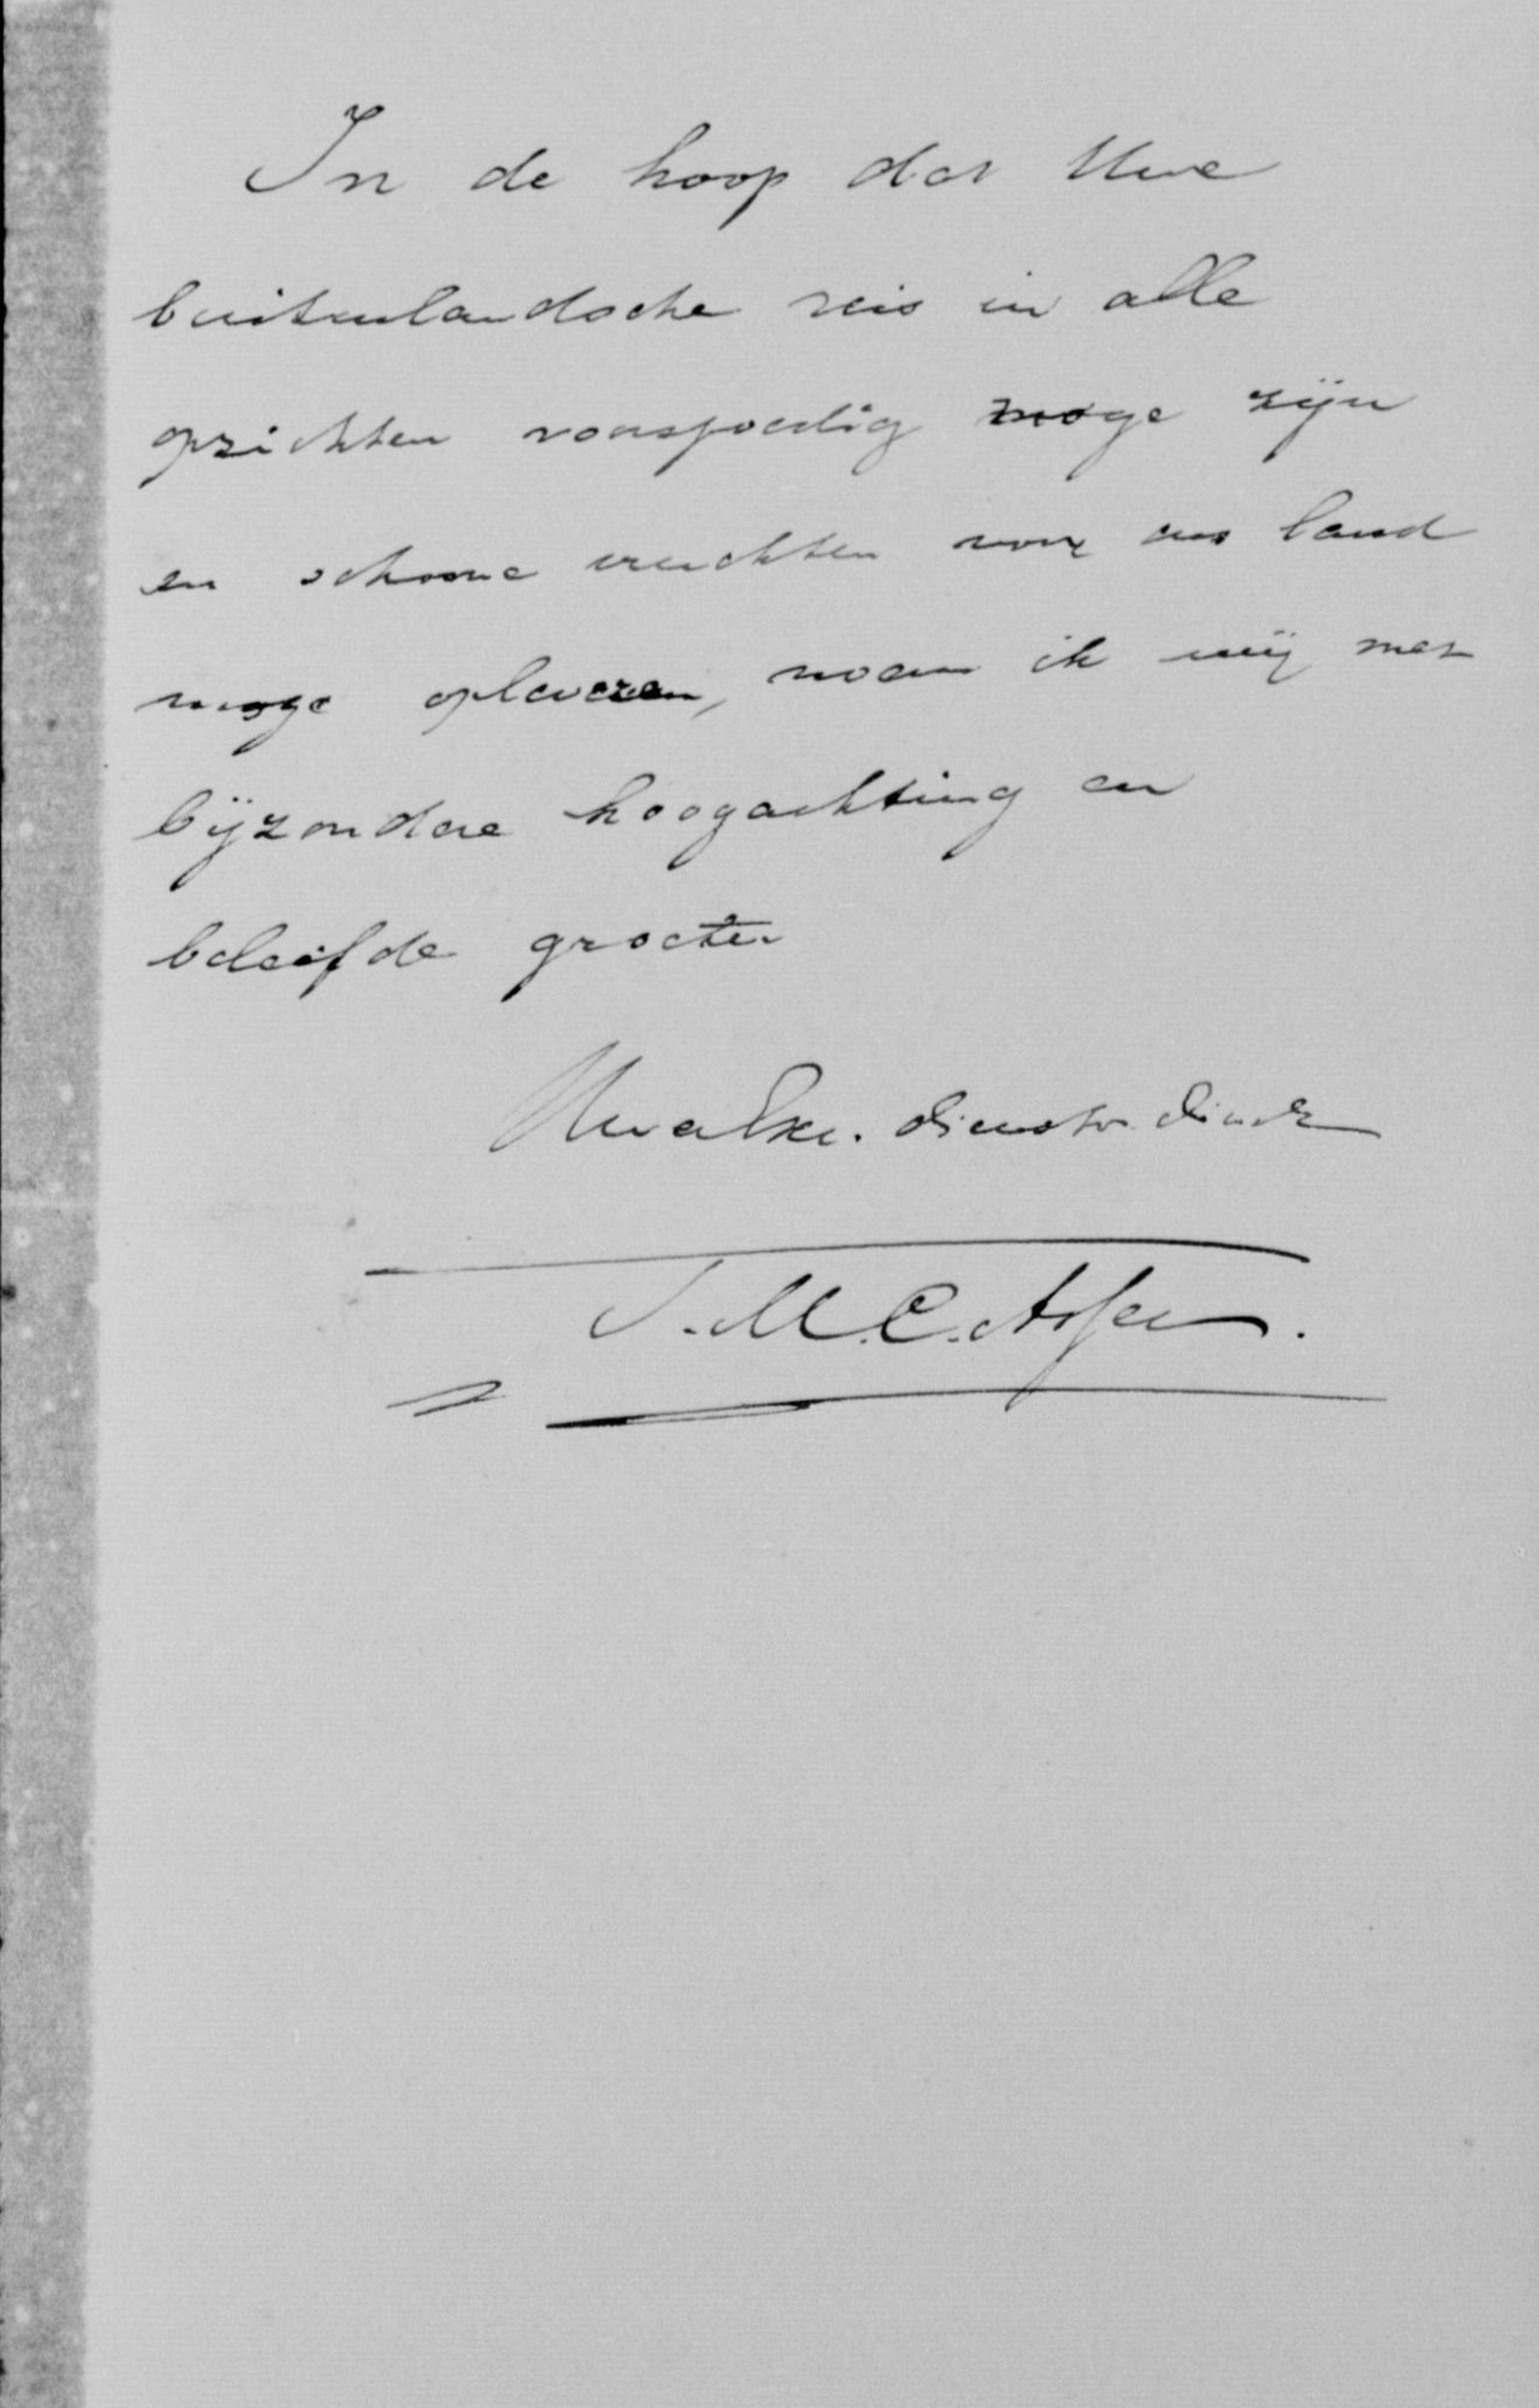 In de hoop dat Uwe
buitenlandsche reis in alle
opzichten voorspoedig moge zijn
en schoone vruchten voor ons land
moge opleveren, noem ik mij met
bijzondere hoogachting en
beleefde groeten
dienstw. dienaar
T.M.C. Asser.